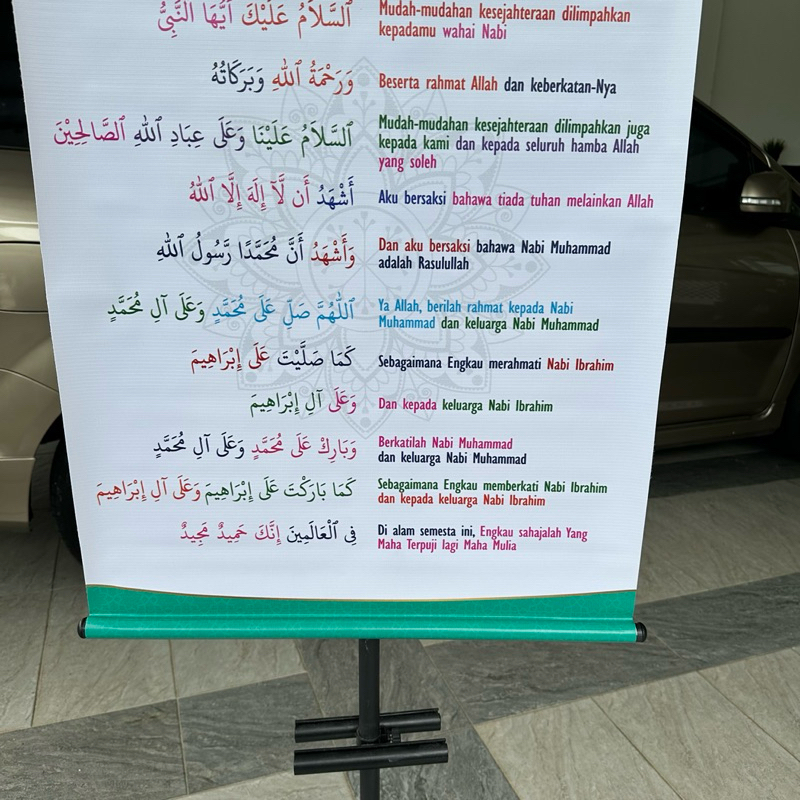 ٱلسَّلاَمُ عَلَيْكَ أَيُّهَا ٱلنَّبِىُّ
Mudah-mudahan kesejahteraan dilimpahkan
kepadamu wahai Nabi
وَرَحْمَةُ ٱللهِ وَبَرَكَاتُهُ
Beserta rahmat Allah dan keberkatan-Nya
ٱلسَّلاَمُ عَلَيْنَا وَعَلَى عِبَادِ ٱللهِ ٱلصَّالِحِيْنَ
Mudah-mudahan kesejahteraan dilimpahkan juga
kepada kami dan kepada seluruh hamba Allah
yang soleh
أَشْهَدُ أَن لَّآ إِلَهَ إِلَّا ٱللهُ
Aku bersaksi bahawa tiada tuhan melainkan Allah
وَأَشْهَدُ أَنَّ مُحَمَّدًا رَّسُولُ ٱللهِ
Dan aku bersaksi bahawa Nabi Muhammad
adalah Rasulullah
ٱللَّهُمَّ صَلِّ عَلَى مُحَمَّدٍ وَعَلَى آلِ مُحَمَّدٍ
Ya Allah, berilah rahmat kepada Nabi
Muhammad dan keluarga Nabi Muhammad
كَمَا صَلَّيْتَ عَلَى إِبْرَاهِيمَ
Sebagaimana Engkau merahmati Nabi Ibrahim
وَعَلَى آلِ إِبْرَاهِيمَ
Dan kepada keluarga Nabi Ibrahim
وَبَارِكْ عَلَى مُحَمَّدٍ وَعَلَى آلِ مُحَمَّدٍ
Berkatilah Nabi Muhammad
dan keluarga Nabi Muhammad
كَمَا بَارَكْتَ عَلَى إِبْرَاهِيمَ وَعَلَى آلِ إِبْرَاهِيمَ
Sebagaimana Engkau memberkati Nabi Ibrahim
dan kepada keluarga Nabi Ibrahim
فِى ٱلْعَالَمِينَ إِنَّكَ حَمِيدٌ مَجِيدٌ
Di alam semesta ini, Engkau sahajalah Yang
Maha Terpuji lagi Maha Mulia